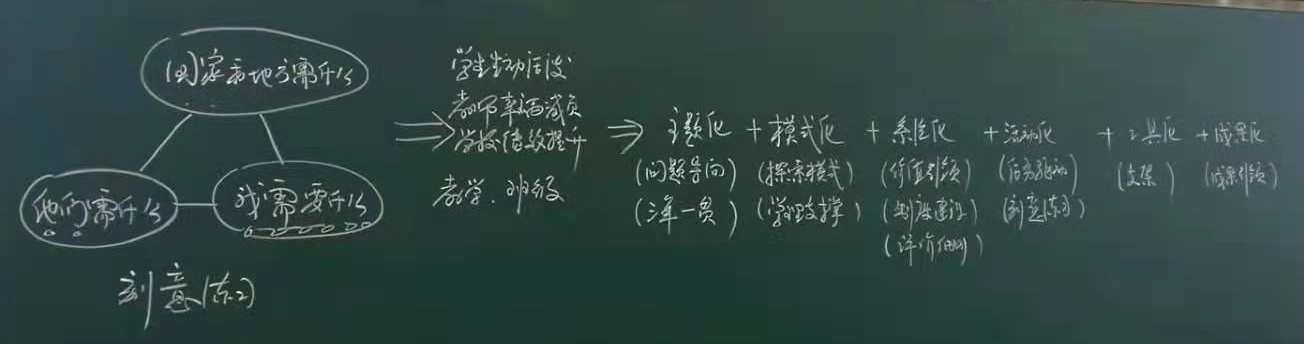 国家和地方需什么
他们需什么
我需要什么
刻意练习
学生生动活泼
教师幸福减负
学校绩效提升
教学、班级
主题化 + 模式化 + 系统化 + 活动化 + 工具化 + 成果化
(问题导向) (探索模式) (价值引领) (任务驱动) (支架) (成果引领)
(一贯) (学理支撑) (制度建设) (刻意练习)
(评价细则)